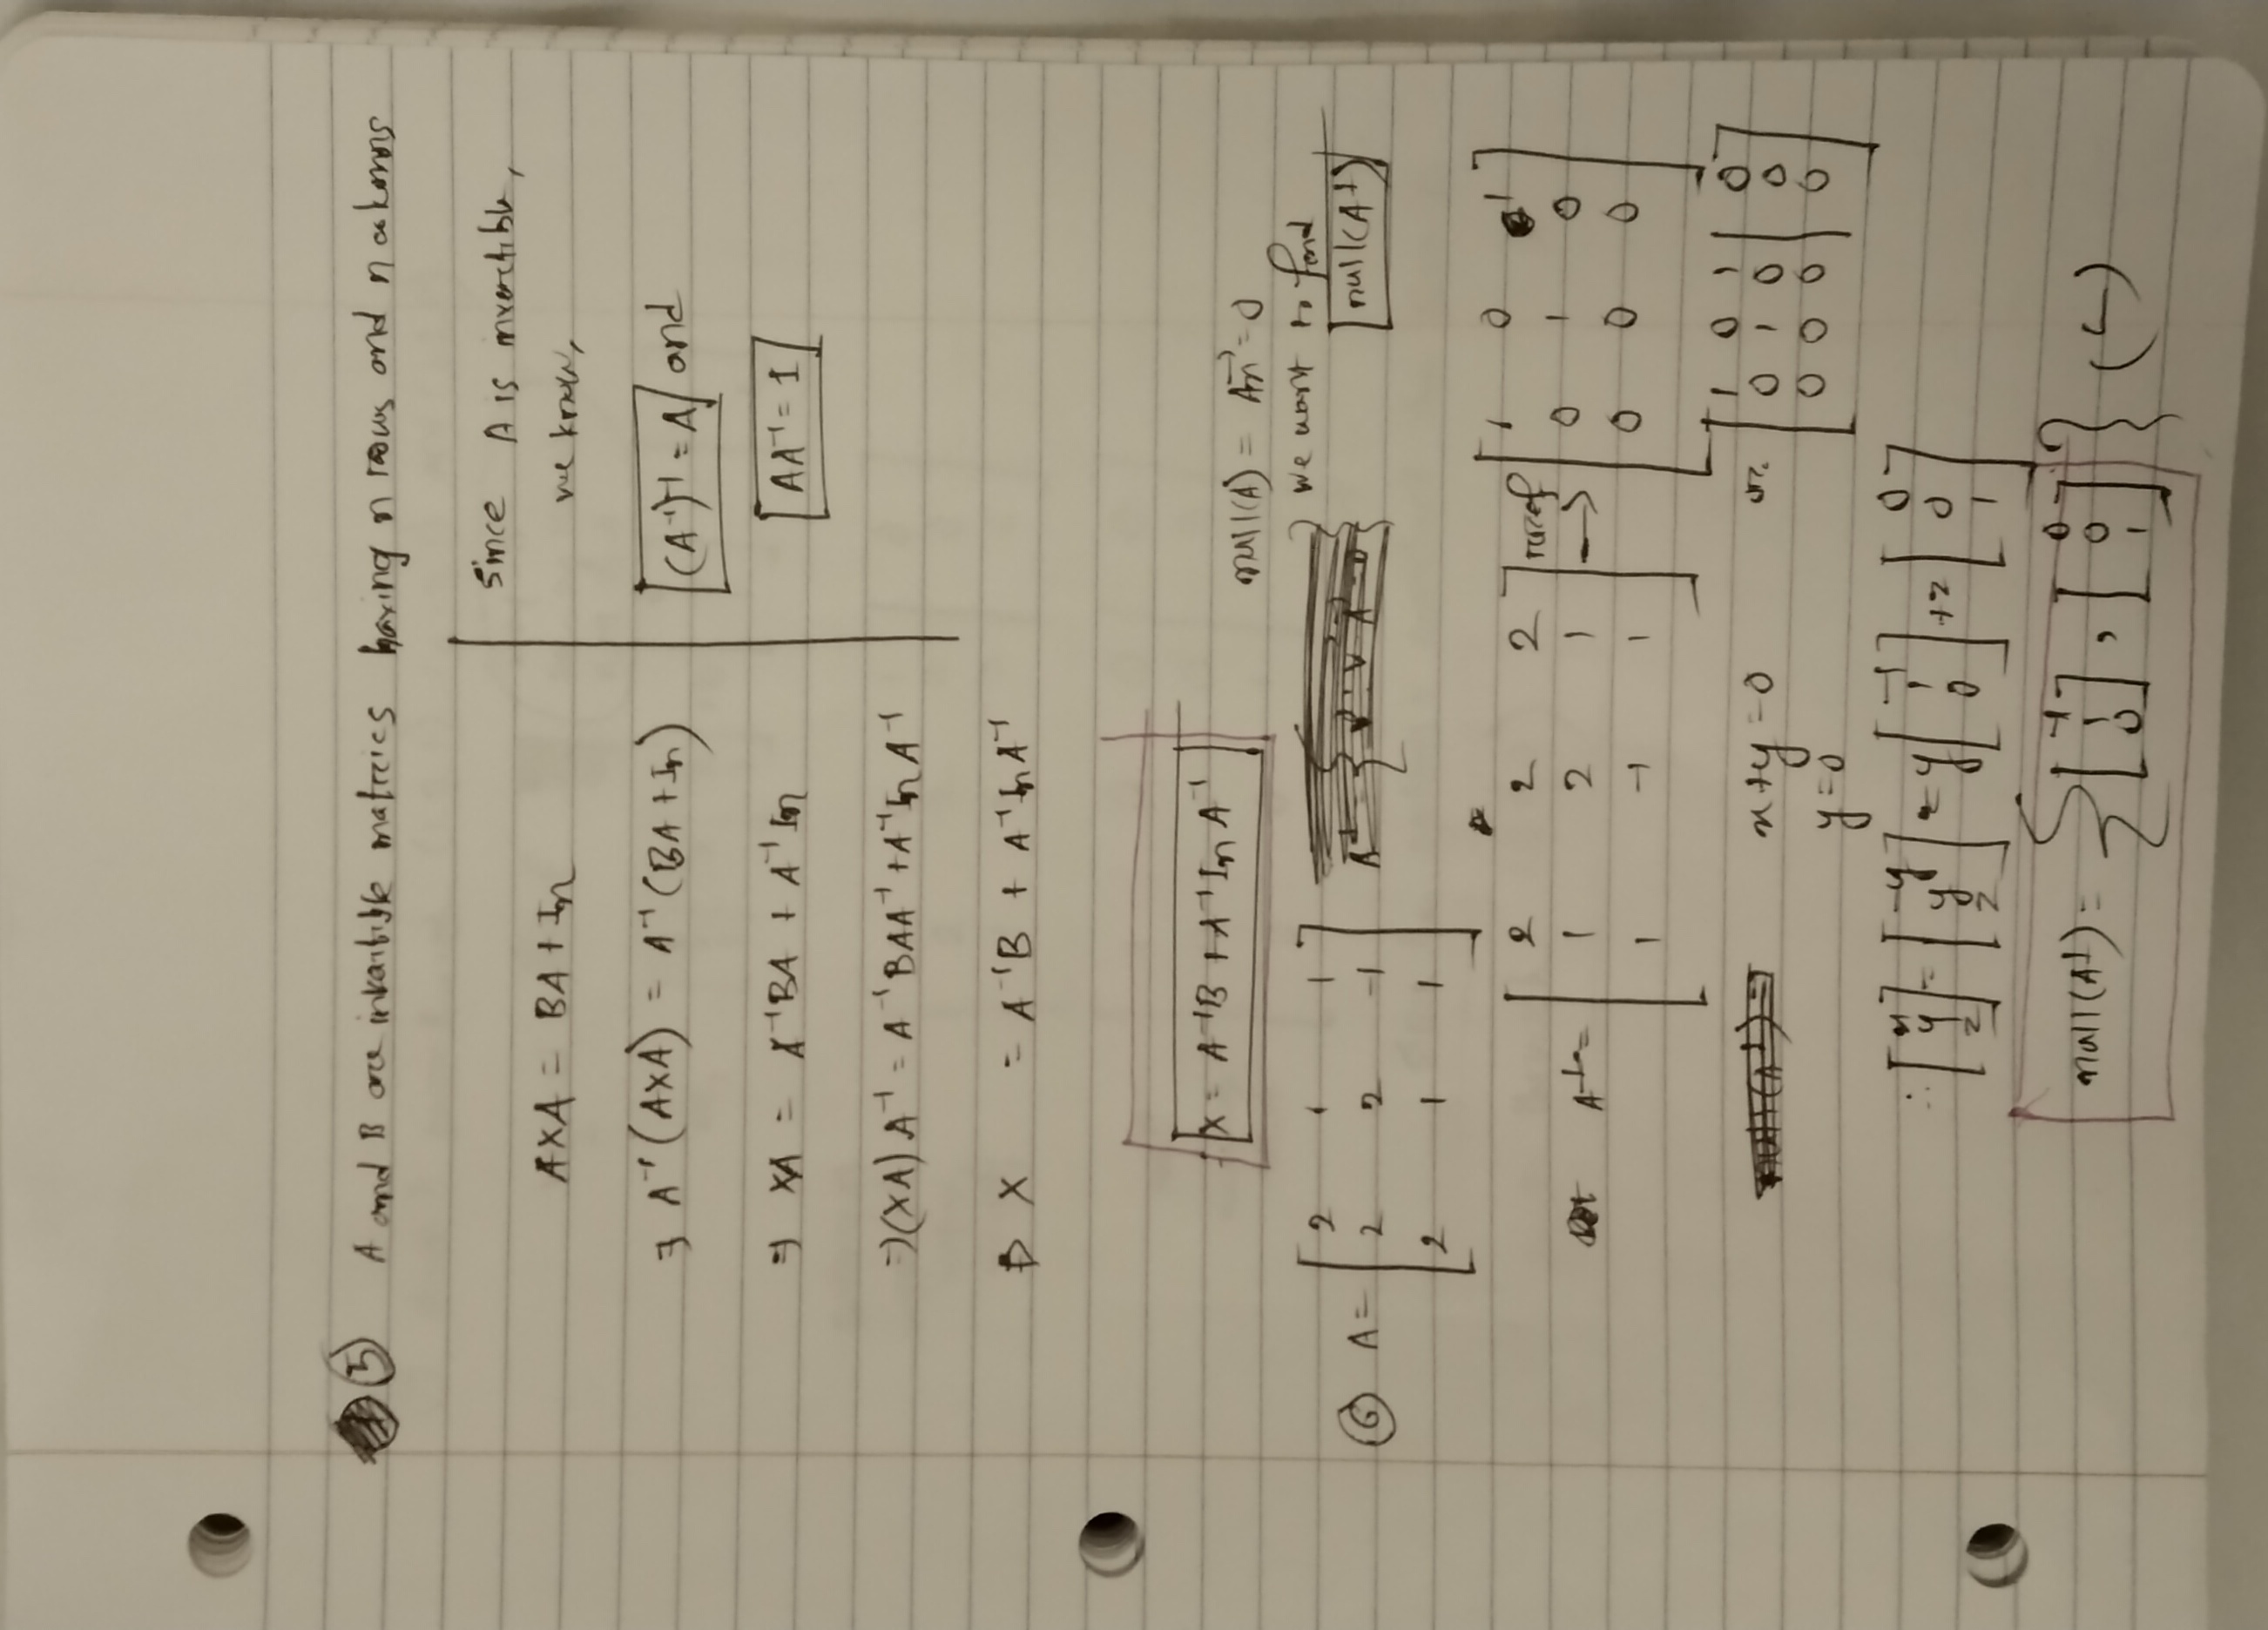 5 A and B are invertible matrices having n rows and n columns
AXA = BA + In
⇒ A⁻¹(AXA) = A⁻¹(BA + In)
⇒ XA = A⁻¹BA + A⁻¹In
⇒ (XA)A⁻¹ = A⁻¹BAA⁻¹ + A⁻¹InA⁻¹
X = A⁻¹B + A⁻¹InA⁻¹
X = A⁻¹B + A⁻¹InA⁻¹
Since A is invertible,
we know,
(A⁻¹)⁻¹ = A and
AA⁻¹ = 1
null(A) = An⃗ = 0
we want to find
null(A⊥)
6 A = [
2 1 1
2 2 -1
2 1 1
]
A⊥ = [
2 2 2
1 2 1
1 -1 1
] rref → [
1 0 1
0 1 0
0 0 0
]
x+y=0
y=0
or. [
1 0 1 | 0
0 1 0 | 0
0 0 0 | 0
]
∴ [x y z] = [-y y z] = y[-1 1 0] + z[0 0 1]
null(A⊥) = {[-1 1 0], [0 0 1]}